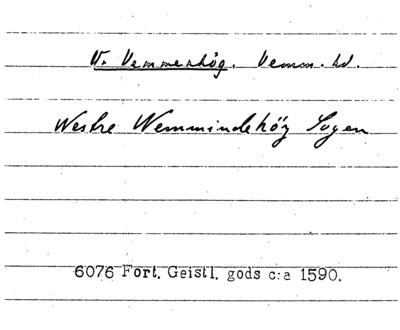 V. Vemmenhög. Vemm. hd.
Westre Wemmindehög Sogen
6076 Fort. Geistl. gods c:a 1590.